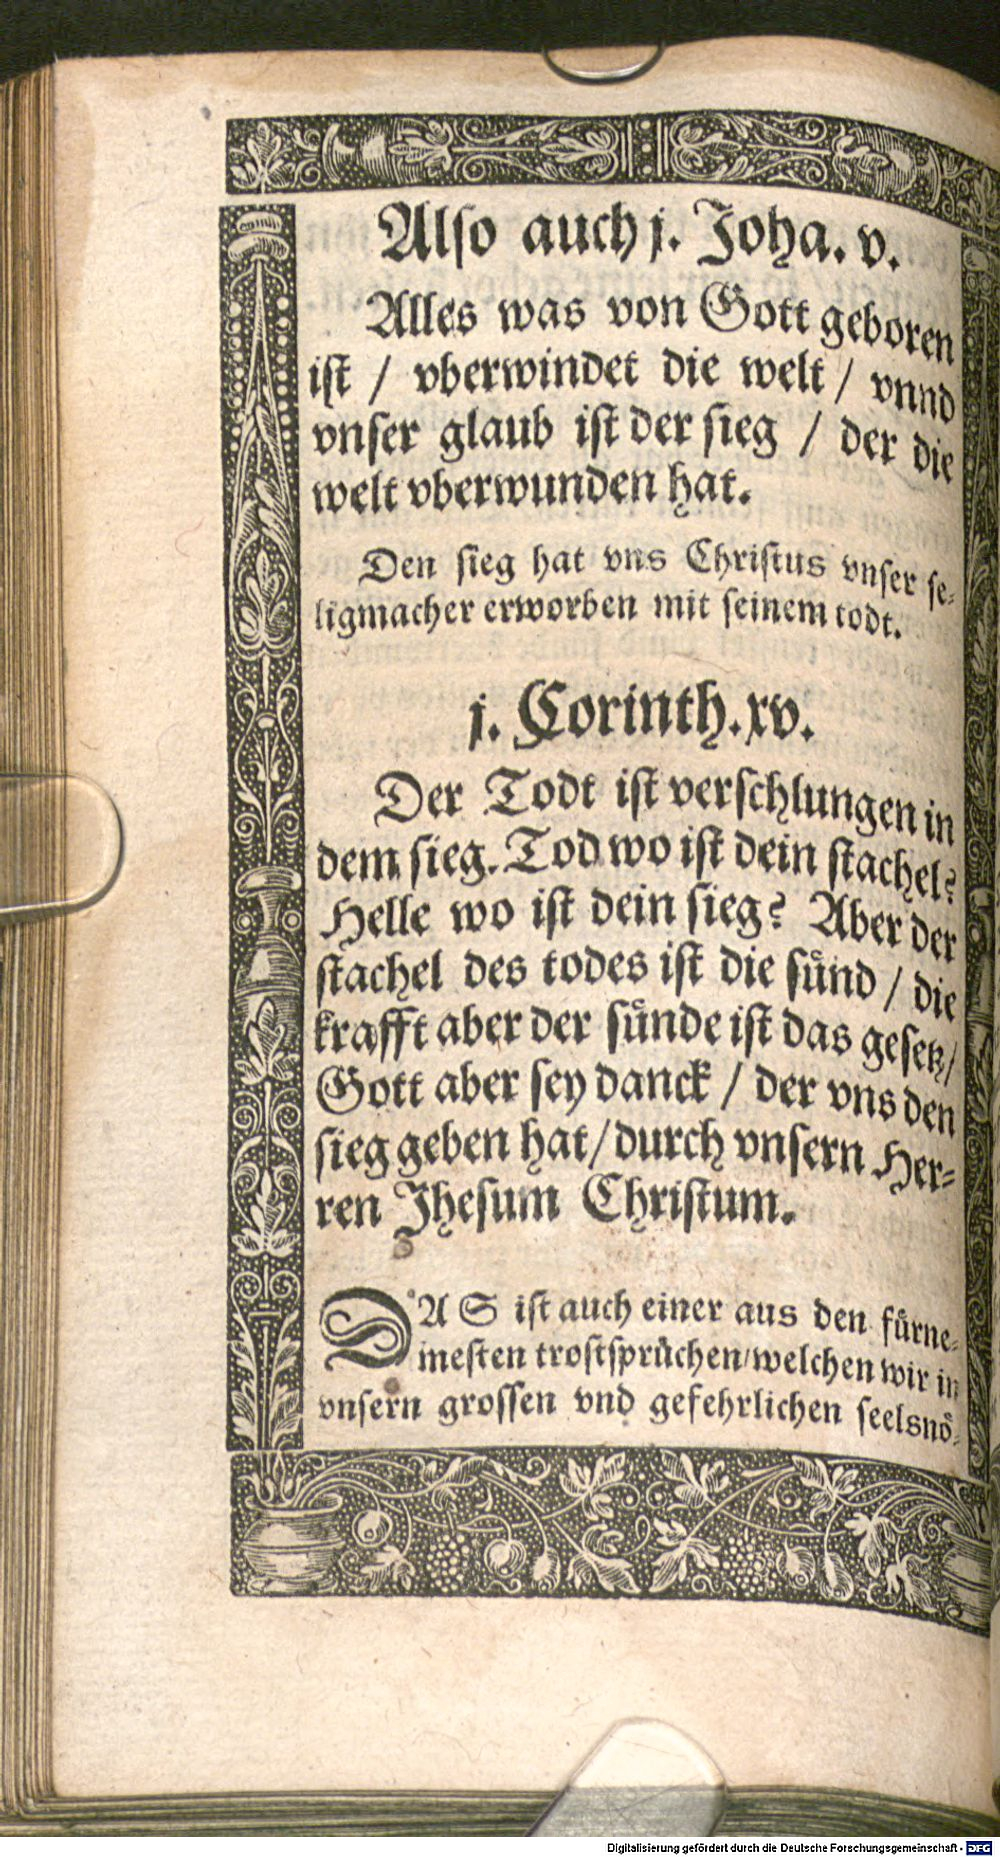 Also auch j. Joha. v.
Alles was von Gott geboren
ist / vberwindet die welt / vnnd
vnser glaub ist der sieg / der die
welt vberwunden hat.
Den sieg hat vns Christus vnser se-
ligmacher erworben mit seinem todt.
j. Corinth. xv.
Der Todt ist verschlungen in
dem sieg. Tod wo ist dein stachel?
Helle wo ist dein sieg? Aber der
stachel des todes ist die sünd / die
krafft aber der sünde ist das gesetz /
Gott aber sey danck / der vns den
sieg geben hat / durch vnsern Her-
ren Jhesum Christum.
DAS ist auch einer aus den fürne-
mesten trostsprüchen / welchen wir in
vnsern grossen vnd gefehrlichen seelsnö-
Digitalisierung gefördert durch die Deutsche Forschungsgemeinschaft - DFG